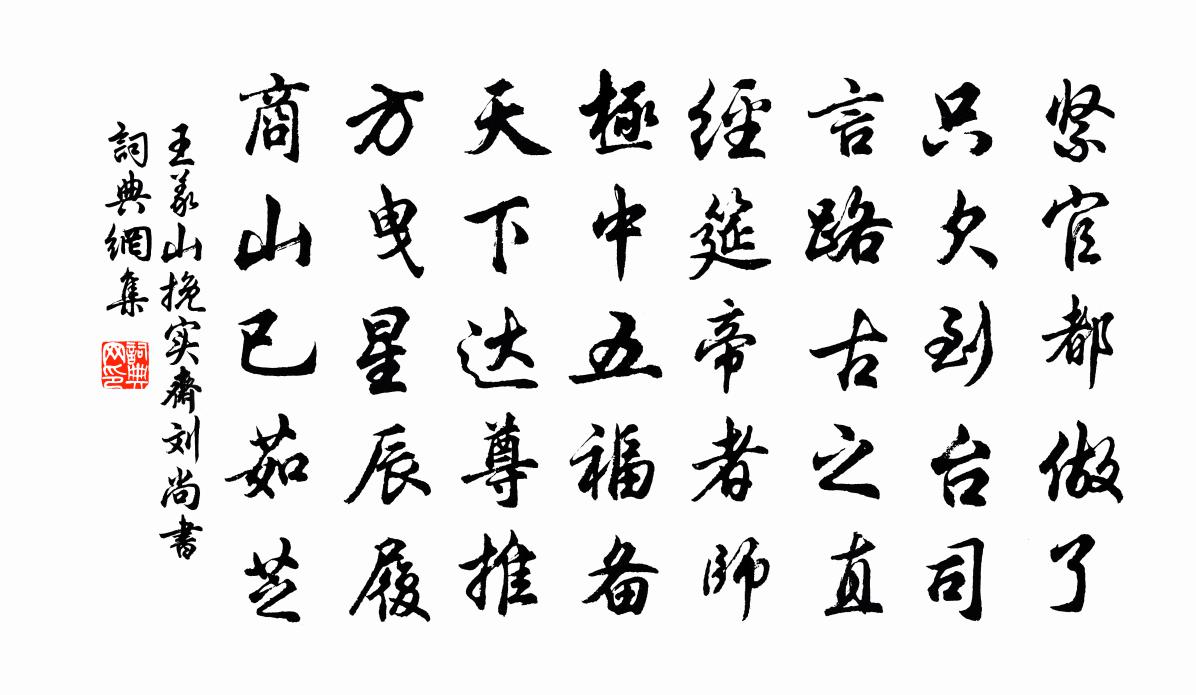 紧官都做了
只欠到台司
言路古之直
經筵帝者師
極中五福备
天下达尊推
方曳星辰履
商山已茹芝
王義山挽实齋刘尚書
詞典網集
詞典网印